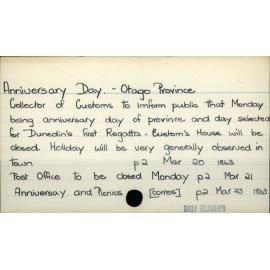 Anniversary Day. - Otago Province
Collector of Customs to inform public that Monday
being anniversary day of province and day selected
for Dunedin's First Regatta - Custom's House will be
closed. Holiday will be very generally observed in
town p2 Mar 20 1863
Post Office to be closed Monday p2 Mar 21
Anniversary and Picnics [comes] p2 Mar 23 1863
DAILY TELEGRAPH